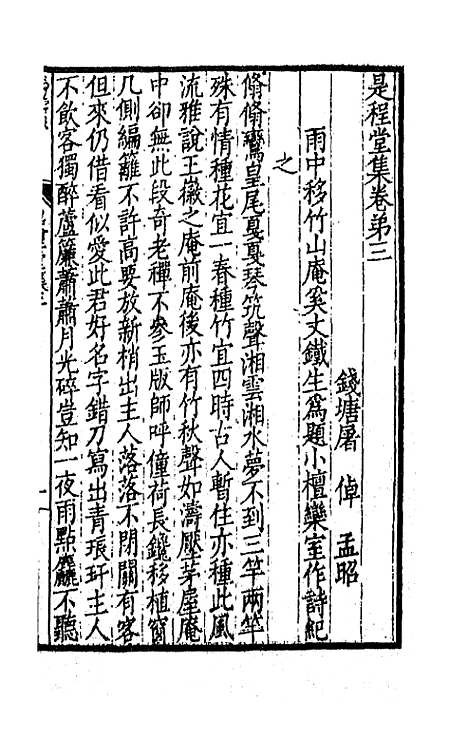 是程堂集卷弟三
錢塘屠　倬　孟昭
雨中移竹山庵奚丈鐵生爲題小檀欒室作詩紀
之
翛翛鸞皇尾戛戛琴筑聲湘雲湘水夢不到三竿兩竿
殊有情種花宜一春種竹宜四時古人暫住亦種此風
流雅說王徽之庵前庵後亦有竹秋聲如濤壓茅屋庵
中卻無此段奇老禪不參玉版師呼僮荷長鑱移植窗
几側編籬不許高要放新梢出主人落落不閉關有客
但來仍借看似愛此君好名字錯刀寫出青琅玕主人
不飲客獨醉蘆簾蕭蕭月光碎豈知一夜雨點麤不聽